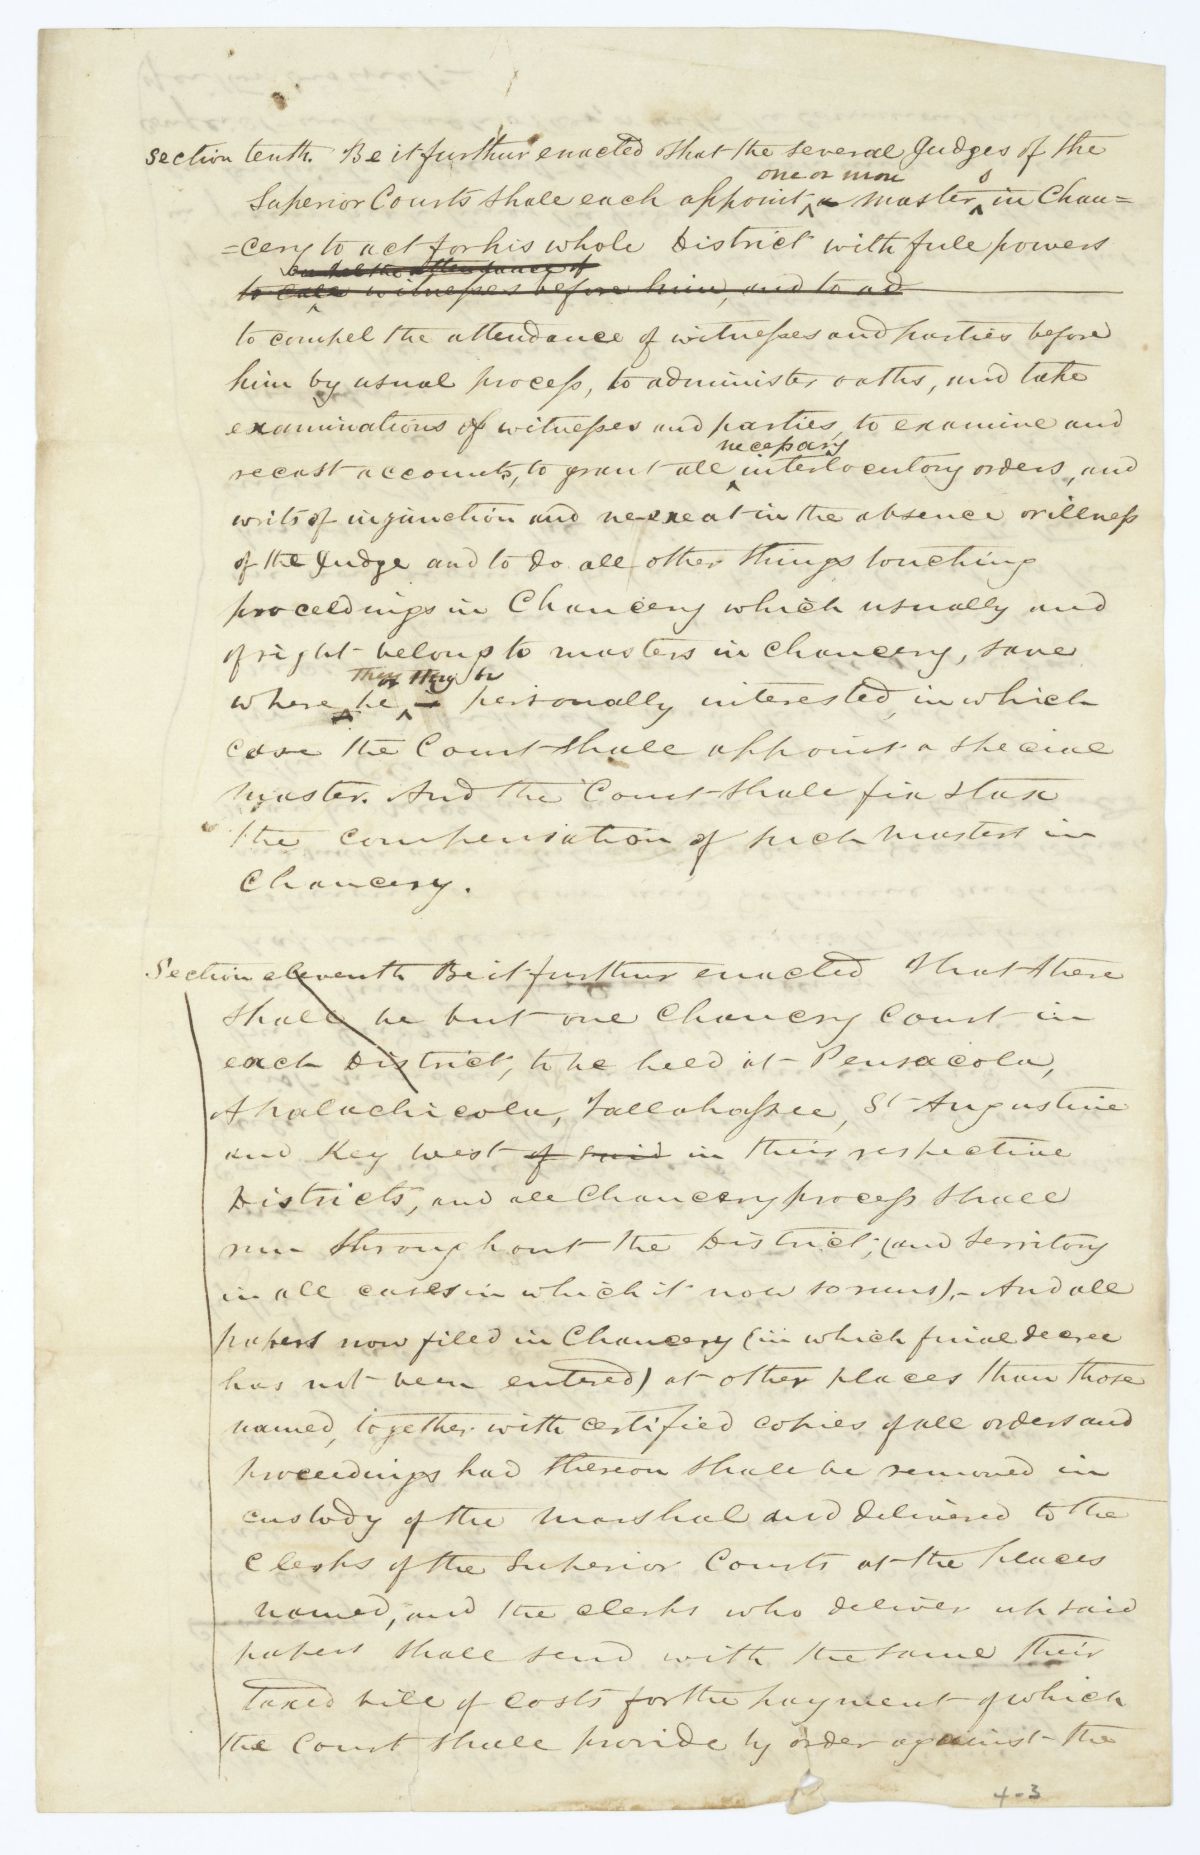 Section tenth. Be it further enacted that the several Judges of the
one or more s
Superior Courts shall each appoint a master in Chan=
=cery to act for his whole District with full powers
compel the attendance of
to call witnesses before him, and to ad
to compel the attendance of witnesses and parties before
him by usual process, to administer oaths, and take
examinations of witnesses and parties, to examine and
necessary
recast accounts, to grant all interlocutory orders, and
writs of injunction and ne-exeat in the absence or illness
of the Judge and to do all other things touching
proceedings in Chancery which usually and
of right belong to masters in Chancery, save
they may be
where he personally interested, in which
case the Court shall appoint a special
master. And the Court shall fix & tax
the compensation of such masters in
Chancery.
Section eleventh Be it further enacted that there
shall be but one Chancery Court in
each District, to be held at Pensacola,
Apalachicola, Tallahassee, St Augustine
and Key West of said in their respective
Districts, and all Chancery process shall
run throughout the District, (and territory
in all cases in which it now so runs).- And all
papers now filed in Chancery (in which final decree
has not been entered) at other places than those
named, together with certified copies of all orders and
proceedings had thereon shall be removed in
custody of the Marshal and delivered to the
Clerks of the Superior Courts at the places
named, and the clerks who deliver up said
papers shall send with the same their
taxed bill of costs for the payment of which
the Court shall provide by order against the
4-3